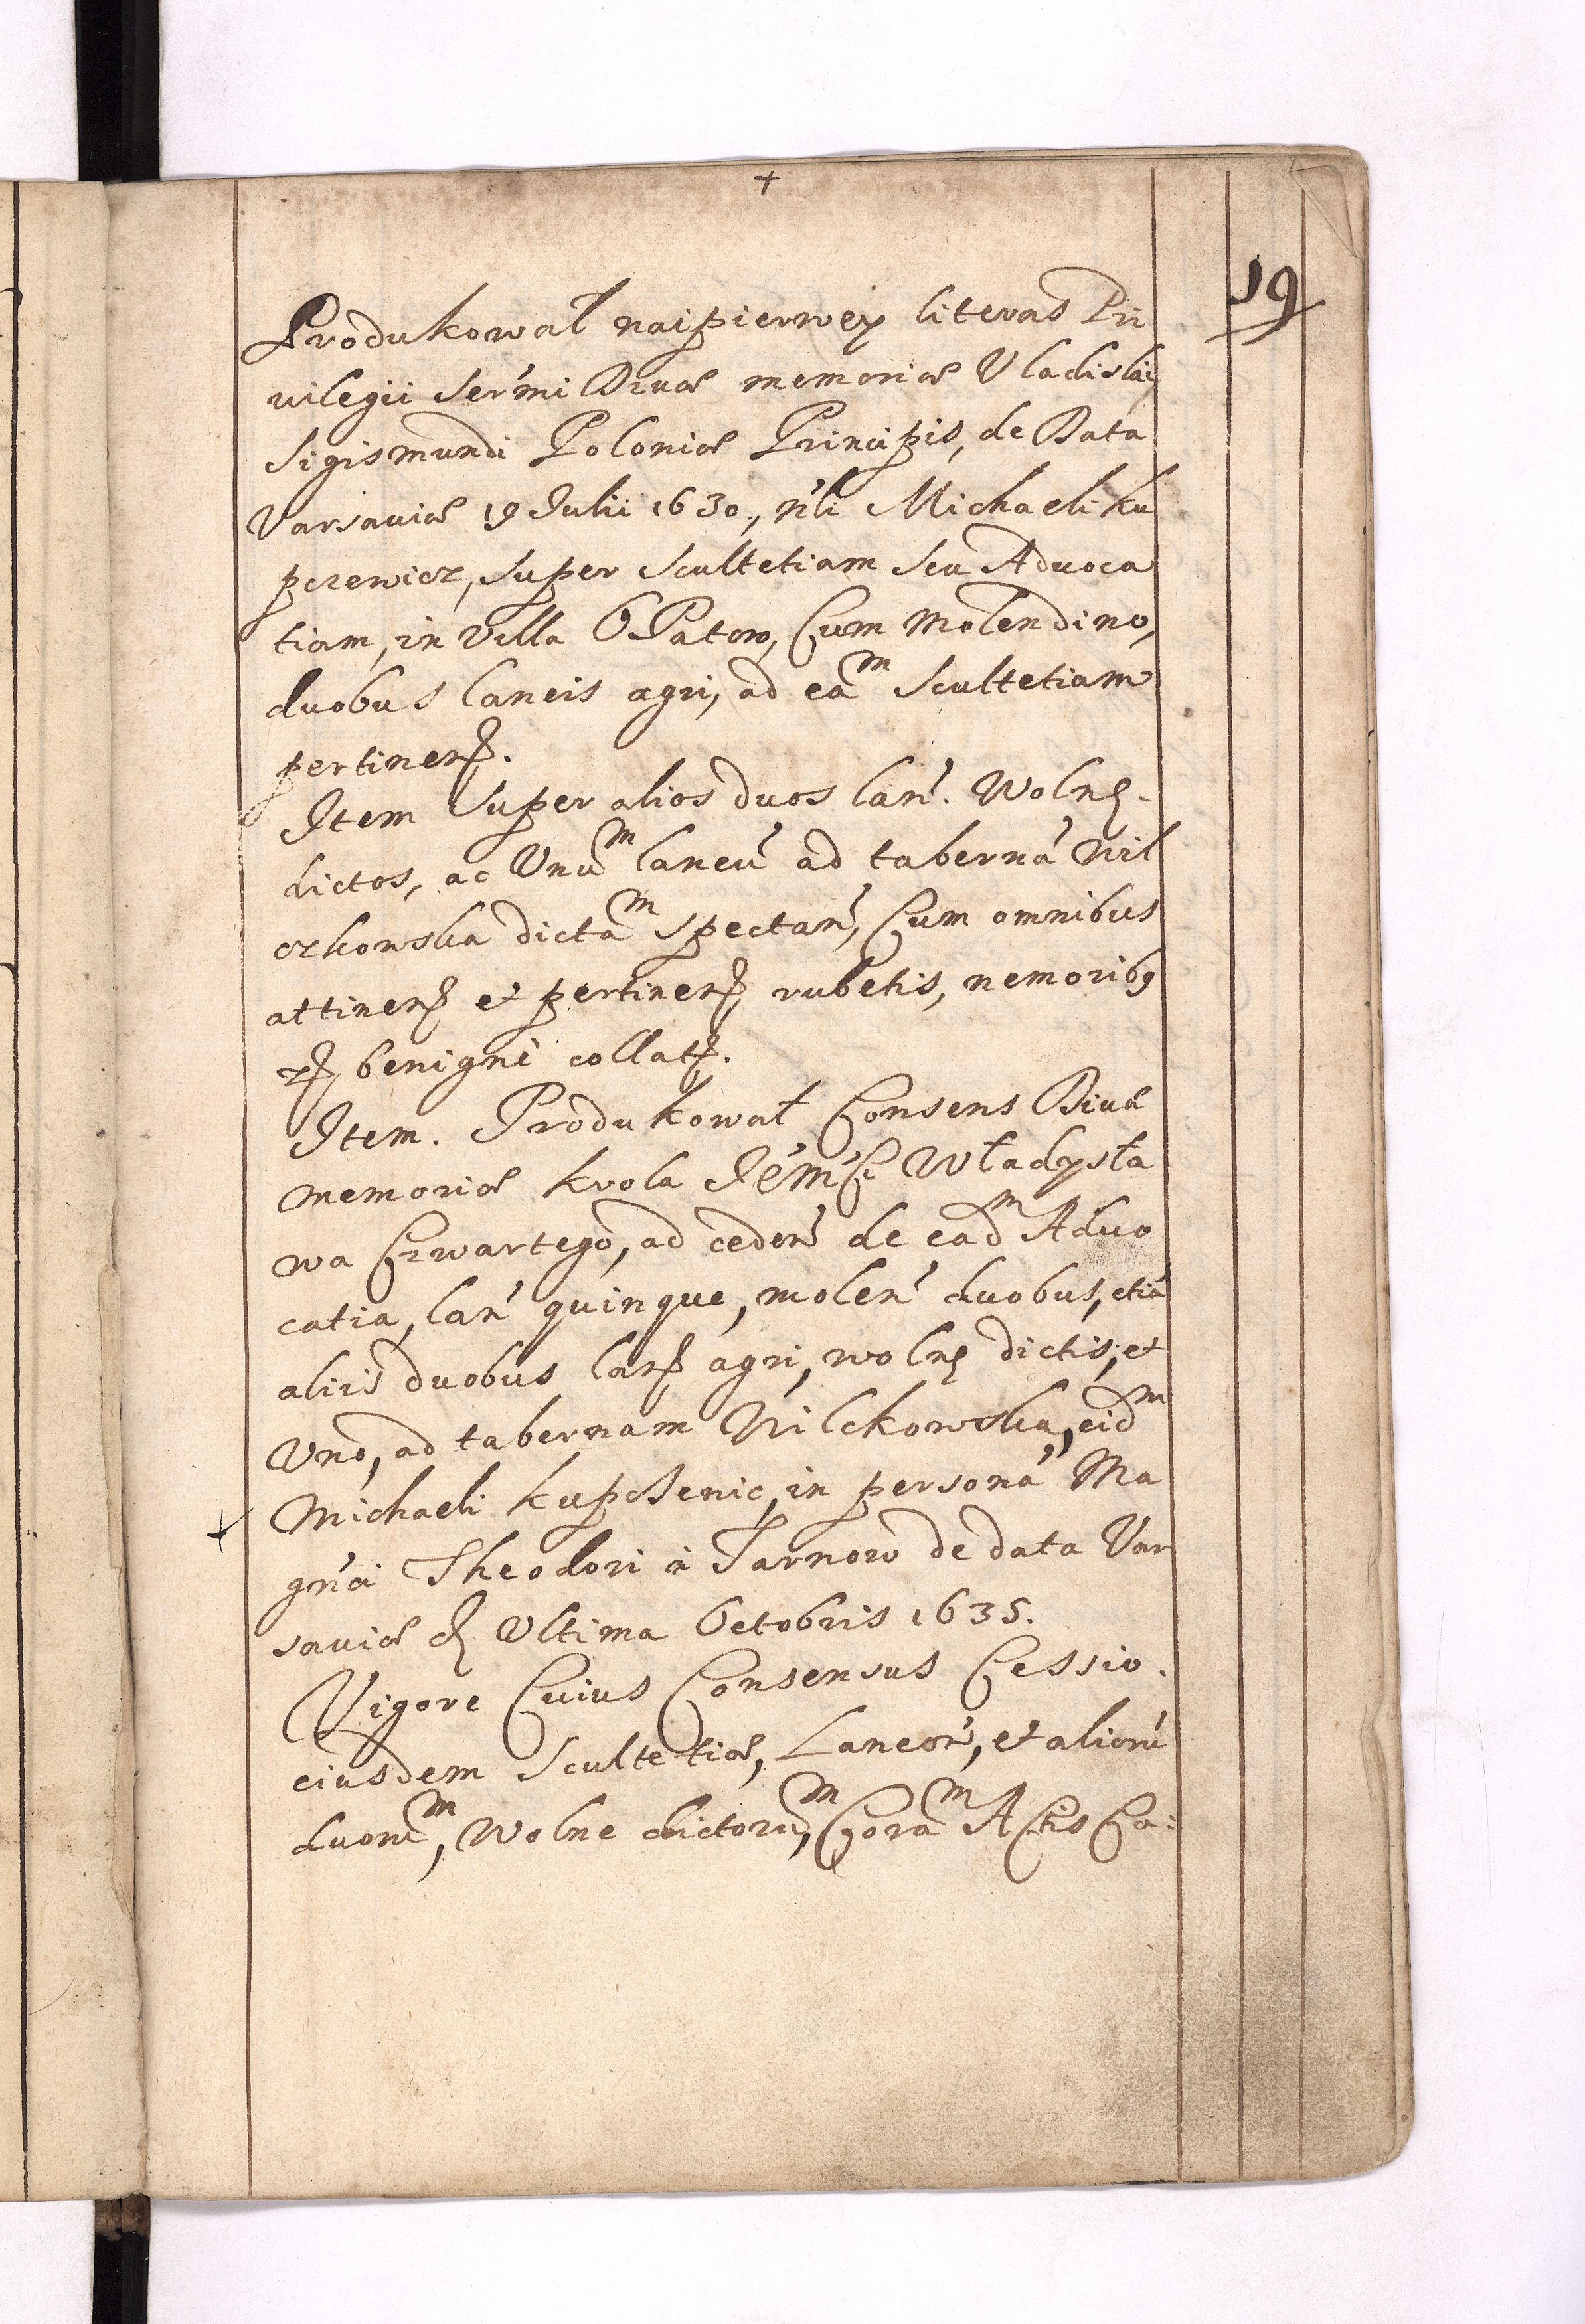 +
19
Produkował naipierwey literas Pri
uilegii Ser'mi Diuæ memoriæ Vladislai
Sigismundi Poloniæ Principis, de Data
Varsauiæ 19 Julii 1630., n'li Michaeli Ku
pczewicz, super Scultetiam seu Aduoca
tiam, in Villa OPatow, Cum Molendino,
duobus laneis agri, ad eaᵐ Scultetiam
pertinen.
Item Super alios duos lan'. Wolne.
dictos, ac Vnuᵐ laneu' ad taberna' Wil
czkowska dictaᵐ spectan', Cum omnibus
attinen et pertinen, rubetis, nemorib9
benigne collat.
Item. Produkował Consens Diuæ
memoriæ krola Je'm'Ci Władysła
wa Czwartego, ad ceden' de eadᵐ Aduo
catia, lan' quinque, molen' duobus, etia'
aliis duobus lan agri, wolne dictis, et
Vno, ad tabernam Wilckowska, eidᵐ
+ Michaeli kupcSenic, in persona' Ma
gn'ci Theodori à Tarnow de data Var
sauiæ d Vltima Octobris 1635.
Vigore Cuius Consensus Cessio.
eiusdem Scultetiæ, Laneor', et alioru'
duoruᵐ, Wolne dictoruᵐ, Coraᵐ ACtis Ca: